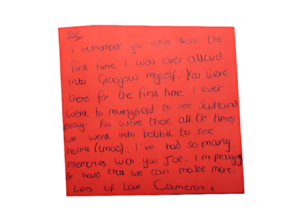 I remember you were there the
first time I was ever allowed
into Glasgow myself. You were
there for the first time I ever
went to murrayfield to see Scotland
play. You were there all the times
we went into to see
I've had so many
memories with you Joe. I'm praying
so hard that we can make more.
Lots of Love Cameron